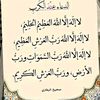 الدعاء عند الكرب
لا إله إلا الله العظيم الحليم،
لا إله إلا الله رب العرش العظيم،
لا إله إلا الله رب السماوات ورب
الأرض، ورب العرش الكريم.